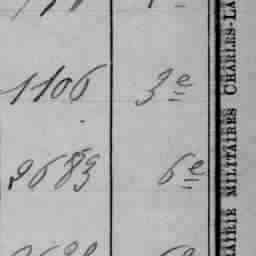 1106 3e
2683 6e
RAIRIE MILITAIRES CHARLES-LA